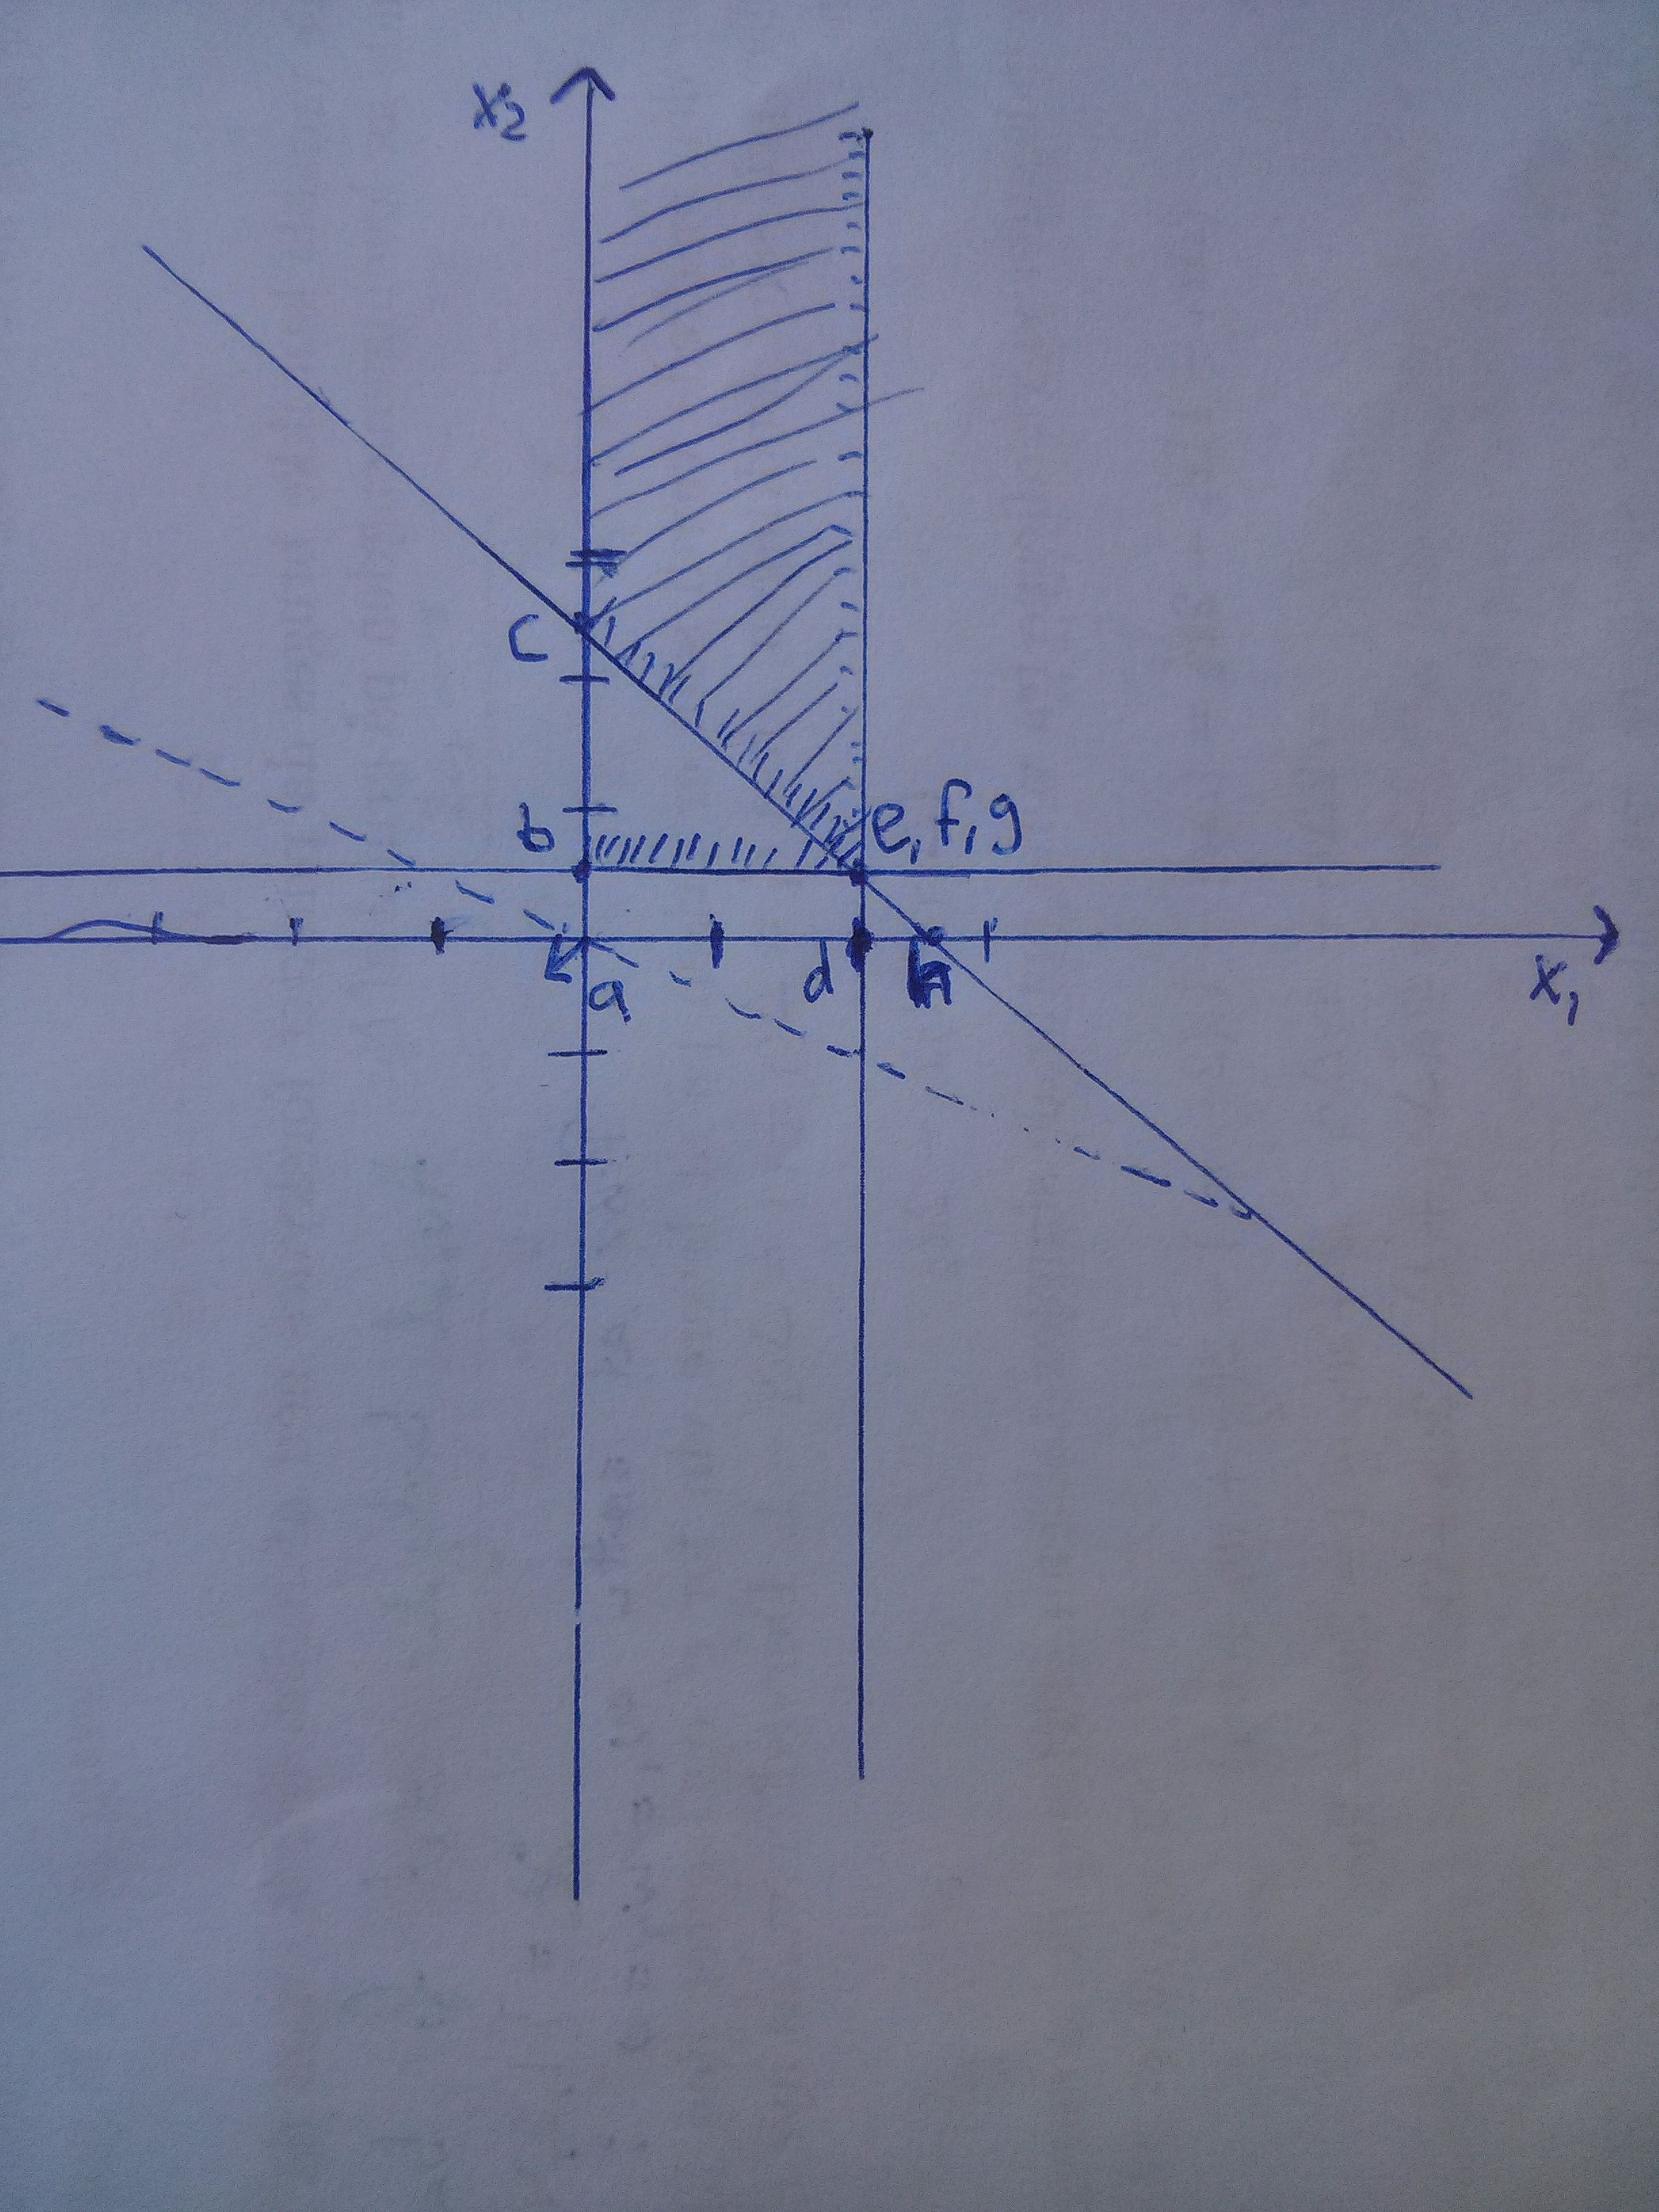 x₂
c
b
e, f, g
a
d
h
x₁